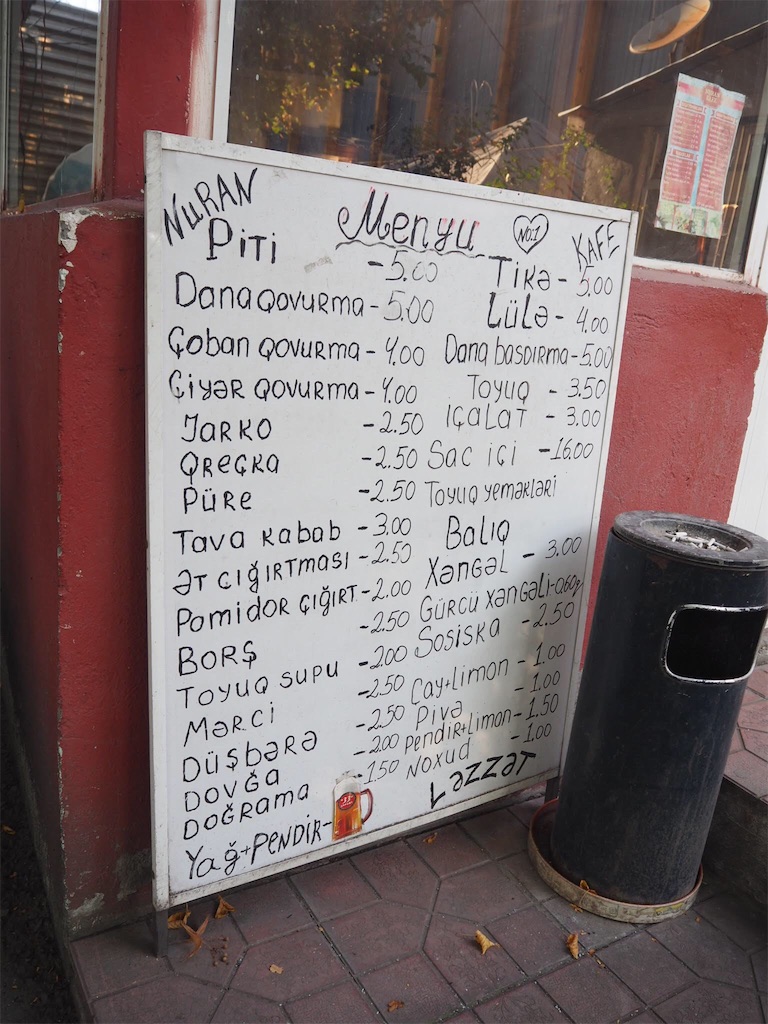 NURAN
Menyu
No:1
KAFE
Piti - 5.00
Dana qovurma - 5.00
Çoban qovurma - 4.00
Ciyər qovurma - 4.00
Jarko - 2.50
Qreçka - 2.50
Püre - 2.50
Tava kabab - 3.00
Ət cığırtması - 2.50
Pomidor çığırt - 2.00
Borş - 2.50
Toyuq supu - 2.00
Mərci - 2.50
Düşbərə - 2.50
Dovğa - 2.00
Doğrama - 1.50
Yağ+Pendir -
Tikə - 5.00
Lülə - 4.00
Dana basdırma - 5.00
Toyuq - 3.50
Içalat - 3.00
Sac içi - 16.00
Toyuq yeməkləri
Balıq
Xəngəl - 3.00
Gürcü xəngəli - 0.60q
Sosiska - 2.50
Çay+Limon - 1.00
Pivə - 1.00
Pendir+Limon - 1.50
Noxud - 1.00
Ləzzət